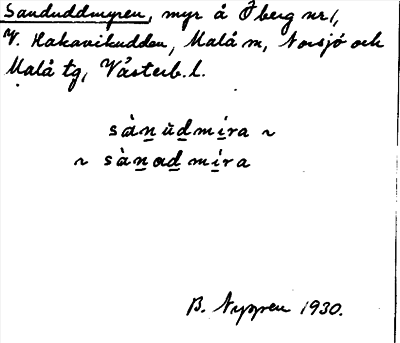 Sanduddmyren, myr å Öberg nr 1,
V. Hakavikudden, Malå m, Norsjö och
Malå tg, Västerb. l.
sàn̲ŭd̲mi̲ra ~
~ sàn̲ad̲mi̲ra
B. Nygren 1930.